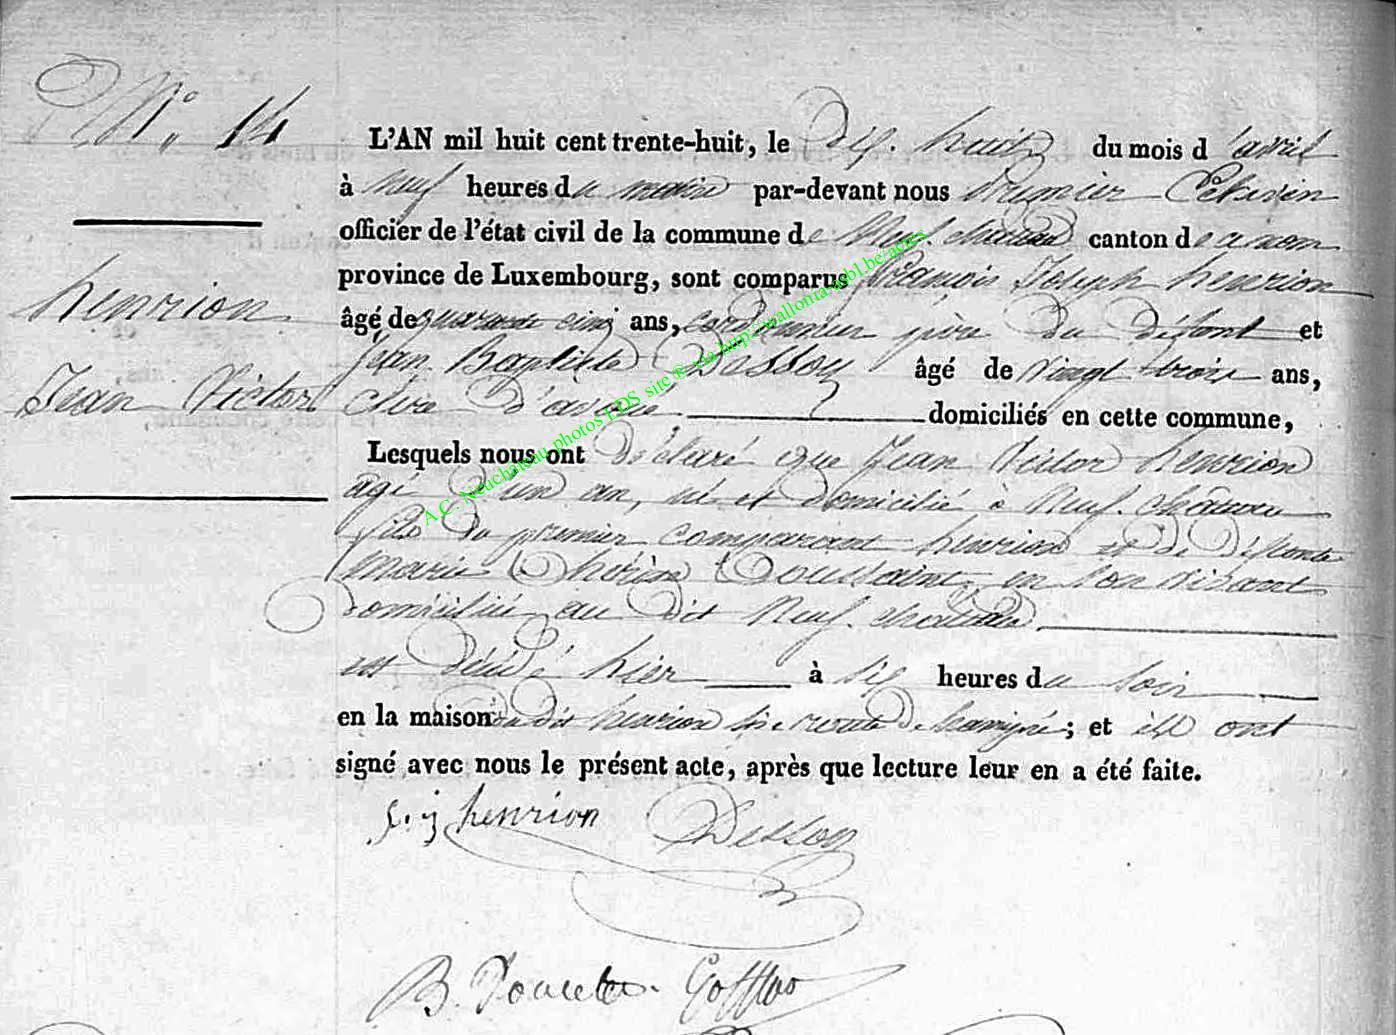 N° 14
henrion
Jean Victor
L'AN mil huit cent trente-huit, le Dix. huit du mois d'avril
à neuf heures du matin par-devant nous Premier Echevin
officier de l'état civil de la commune de Neuf. chateau canton de ce nom
province de Luxembourg, sont comparus françois Joseph henrion
âgé de quarante cinq ans, cordonnier père du défunt et
Jean Baptiste Dessoy âgé de vingt trois ans,
clerc d'avoué domiciliés en cette commune,
Lesquels nous ont déclaré que Jean Victor henrion
agé d'un an, né et domicilié à Neuf. chateau
fils du premier comparant henrion et de défunte
marie Thérèse Toussaint, en son vivant
domiciliée au dit Neuf. chateau
est décédé hier à six heures du soir
en la maison du dit henrion route de ; et ils ont
signé avec nous le présent acte, après que lecture leur en a été faite.
f. j henrion Dessoy
B.
A.C. Neuchateau photos EDS site ® via http://wallonia-asbl.be/actes